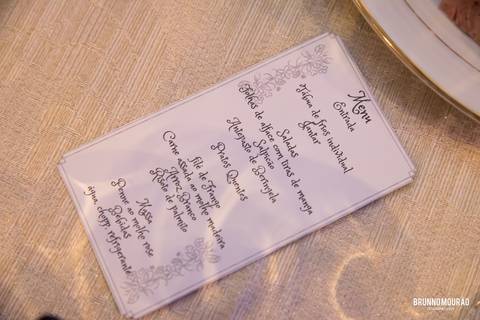 Menu
Entrada
Tábua de frios individual
Jantar
Saladas
Folhas de alface com tiras de manga
Salpicão
Antepasto de Berinjela
Pratos Quentes
Filé de Frango
Carne assada ao molho madeira
Arroz Branco
Risoto de palmito
Massa
Penne ao molho rose
Bebidas
água, chopp, refrigerante
BRUNNO MOURÃO